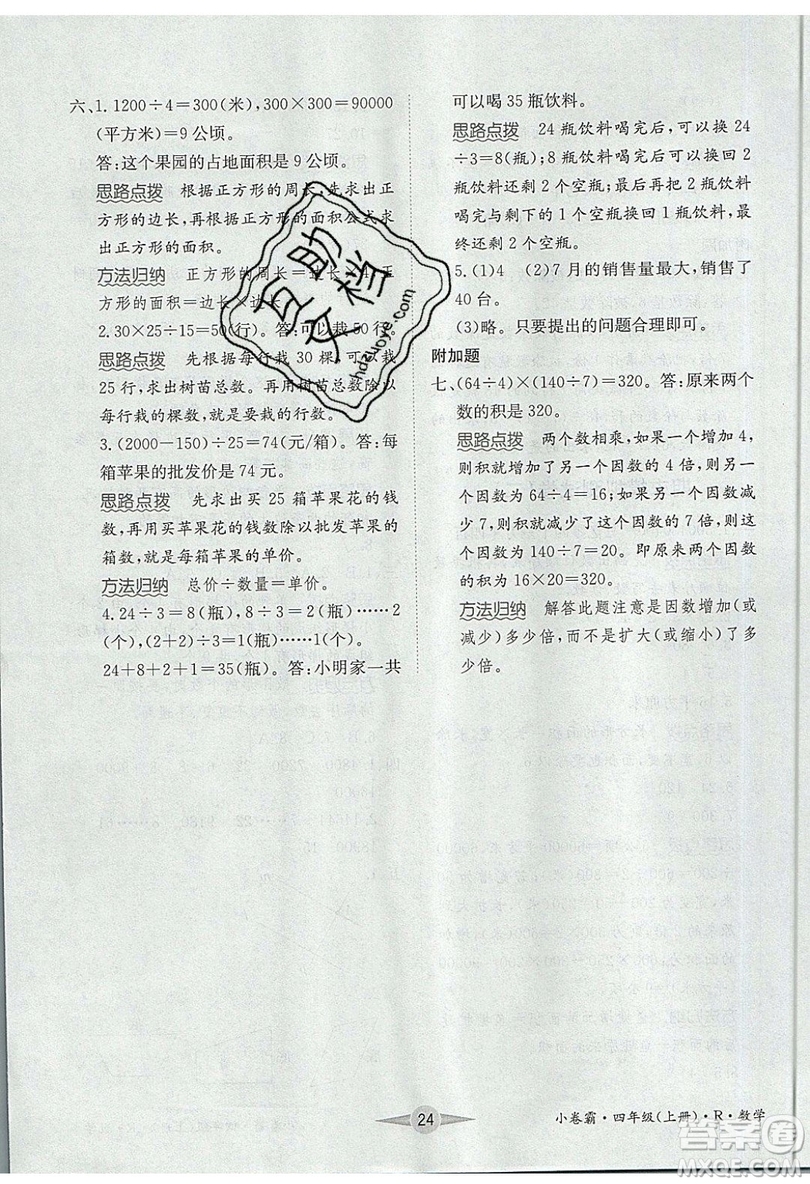 六、1.1200÷4=300(米),300×300=90000
(平方米)=9公顷。
答:这个果园的占地面积是9公顷。
思路点拨 根据正方形的周长,先求出正
方形的边长,再根据正方形的面积公式求
出正方形的面积。
方法归纳 正方形的周长=边长×4 正
方形的面积=边长×边长
2.30×25÷15=50(行) 答:可以栽50行。
思路点拨 根据每行栽30棵,
25行,求出树苗总数。再用树苗总数除以
每行栽的棵数,就是要栽的行数。
3.(2000-150)÷25=74(元/箱) 答:每
箱苹果的批发价是74元。
思路点拨 先求出买25箱苹果花的钱
数,再用买苹果花的钱数除以批发苹果的
箱数,就是每箱苹果的单价。
方法归纳 总价÷数量=单价。
4.24÷3=8(瓶),8÷3=2(瓶)……2
(个),(2+2)÷3=1(瓶)……1(个)。
24+8+2+1=35(瓶) 答:小明家一共
可以喝35瓶饮料。
思路点拨 24瓶饮料喝完后,可以换24
÷3=8(瓶);8瓶饮料喝完后可以换回2
瓶饮料还剩2个空瓶,最后再把2瓶饮料
喝完后与剩下的2个空瓶换回1瓶饮料
还剩1个空瓶。
5.(1)4 (2)7月的销售量最大,销售了
40台。
(3)略。只要提出的问题合理即可。
附加题
七、(64÷4)×(140÷7)=320。答:原来两个
数的积是320。
思路点拨 两个数相乘,如果一个增加4,
则积就增加了另一个因数的4倍,则另一
个因数为64÷4=16;如果另一个因数减
少7,则积就减少了这个因数的7倍,则这
个因数为140÷7=20。即原来两个因数
的积为16×20=320。
方法归纳 解答此题注意是因数增加(或
减少)多少倍,而不是扩大(或缩小)了多
少倍。
互助
文档
hdzuoye.com
24
小卷霸·四年级(上册)·R·数学
答案圈
MXQE.COM